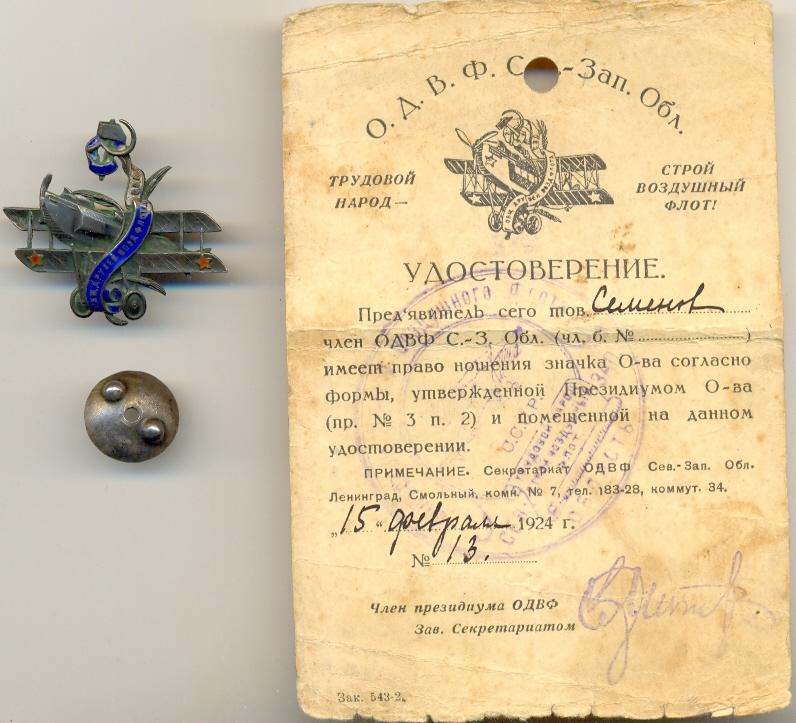 О. Д. В. Ф. С -Зап. Обл.
ТРУДОВОЙ НАРОД—
СТРОЙ ВОЗДУШНЫЙ ФЛОТ!
УДОСТОВЕРЕНИЕ.
Пред'явитель сего тов. Семенов
член ОДВФ С.-З. Обл. (чл. б. № )
имеет право ношения значка О-ва согласно
формы, утвержденной Президиумом О-ва
(пр. № 3 п. 2) и помещенной на данном
удостоверении.
ПРИМЕЧАНИЕ. Секретариат ОДВФ Сев.-Зап. Обл.
Ленинград, Смольный, комн. № 7, тел. 183-28, коммут. 34.
„15“ февраля 1924 г.
№ 13.
Член президиума ОДВФ
Зав. Секретариатом
Зак. 543-2.